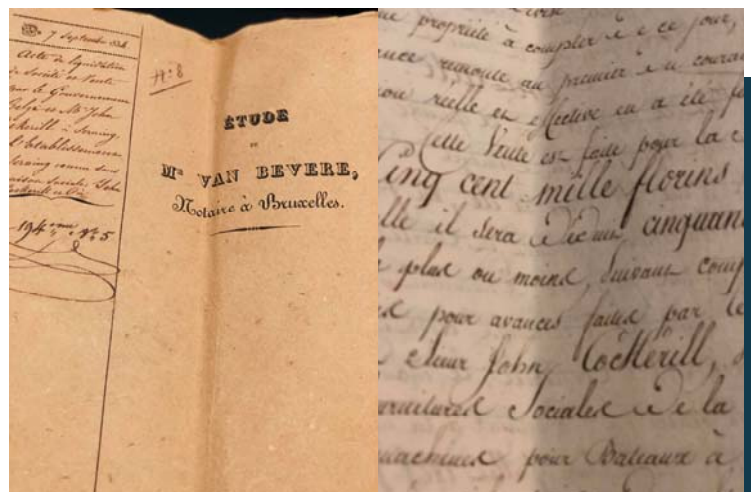 7 Septembre 1834
Acte de liquidation
de Société et Vente
par le Gouvernement
Belge et Mr John
Cockerill à Seraing
l'Etablissement
Seraing connu sous
raison sociale John
Cockerill et Cie
194 5
N° 8
ÉTUDE
DE
Me VAN BEVERE,
Notaire à Bruxelles.
propriété à compter de ce jour,
remonte au premier du couran
réelle et effective en a été
Cette Vente est faite pour la
Cinq cent mille florins
il sera déduit cinquan
plus ou moins, suivant comp
pour avances faites par le
Sieur John Cockerill,
Sociales de la
machines pour Bateaux à